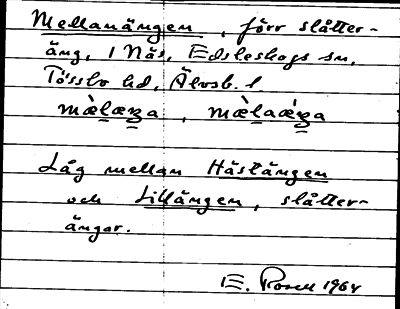 Mellanängen, förr slåtter-
äng, i Näs, Edsleskogs sn,
Tössbo hd, Älvsb. l
Låg mellan Hästängen
och Lillängen, slåtter-
ängar.
E. Rosell 1964